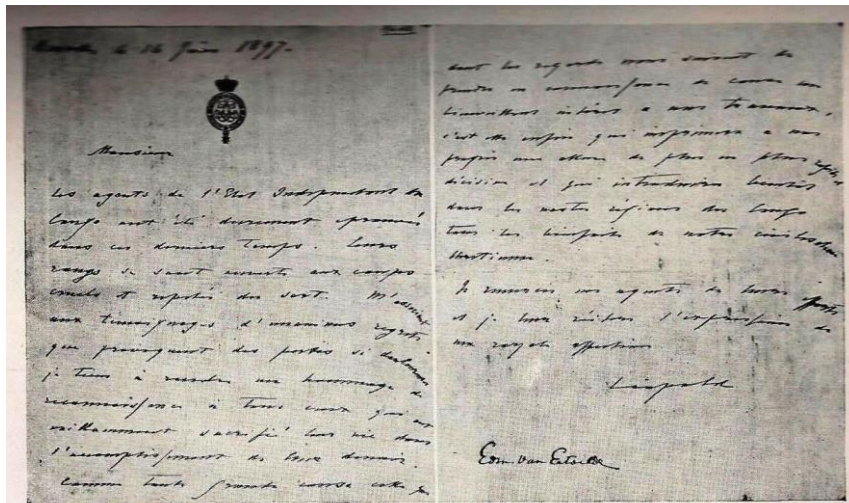 le 16 Juin 1897.
Monsieur
Les agents de l'Etat Indépendant du
Congo ont été durement éprouvés
dans ces derniers temps. Leurs
rangs se sont ouverts aux coups
cruels et répétés du sort. M'associant
aux témoignages d'unanimes regrets
que provoquent des pertes si douloureuses
je tiens à rendre un hommage de
reconnaissance à tous ceux qui ont
vaillamment sacrifié leur vie dans
l'accomplissement de leur devoir.
Comme toute grande cause celle que
dont les regards nous suivent
c'est elle enfin qui imprimera à nos
progrès une allure de plus en plus
décisive et qui introduira bientôt
dans les vastes régions du Congo
tous les bienfaits de notre civilisation
chrétienne.
Je remercie nos agents de leurs efforts
et je leur réitère l'expression de
ma royale affection
Léopold
Edm. van Eetvelde